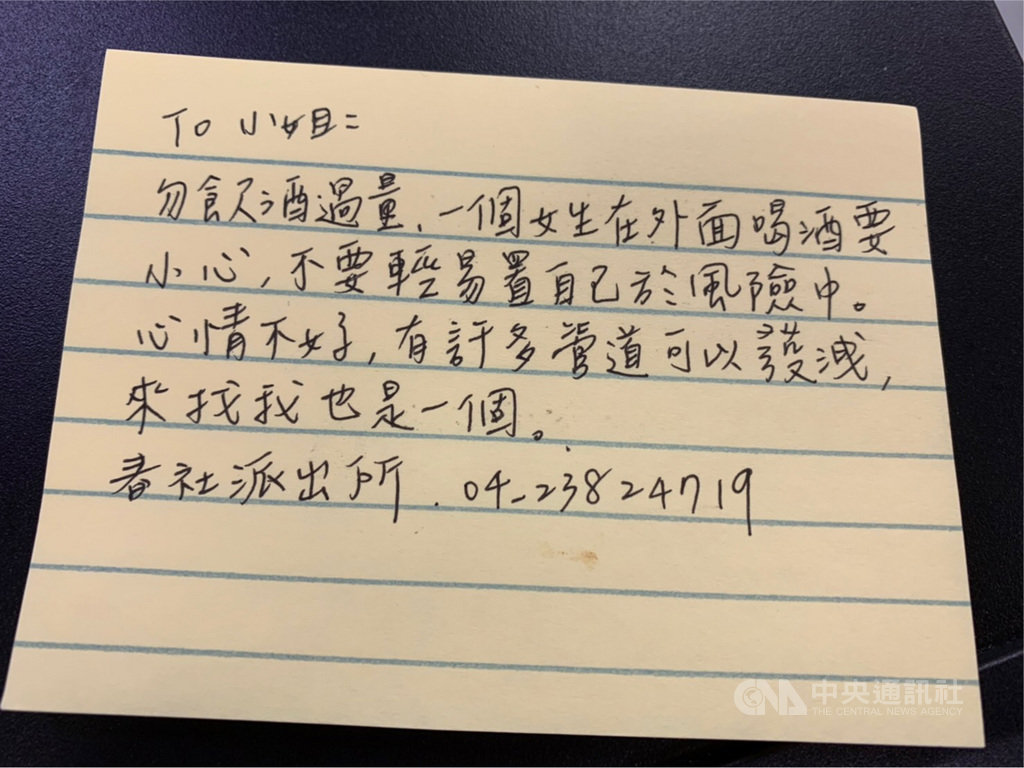 To 小姐:
勿飲酒過量、一個女生在外面喝酒要
小心,不要輕易置自己於風險中。
心情不好,有許多管道可以發洩,
來找我也是一個。
春社派出所. 04-23824719
CNA 中央通訊社
THE CENTRAL NEWS AGENCY